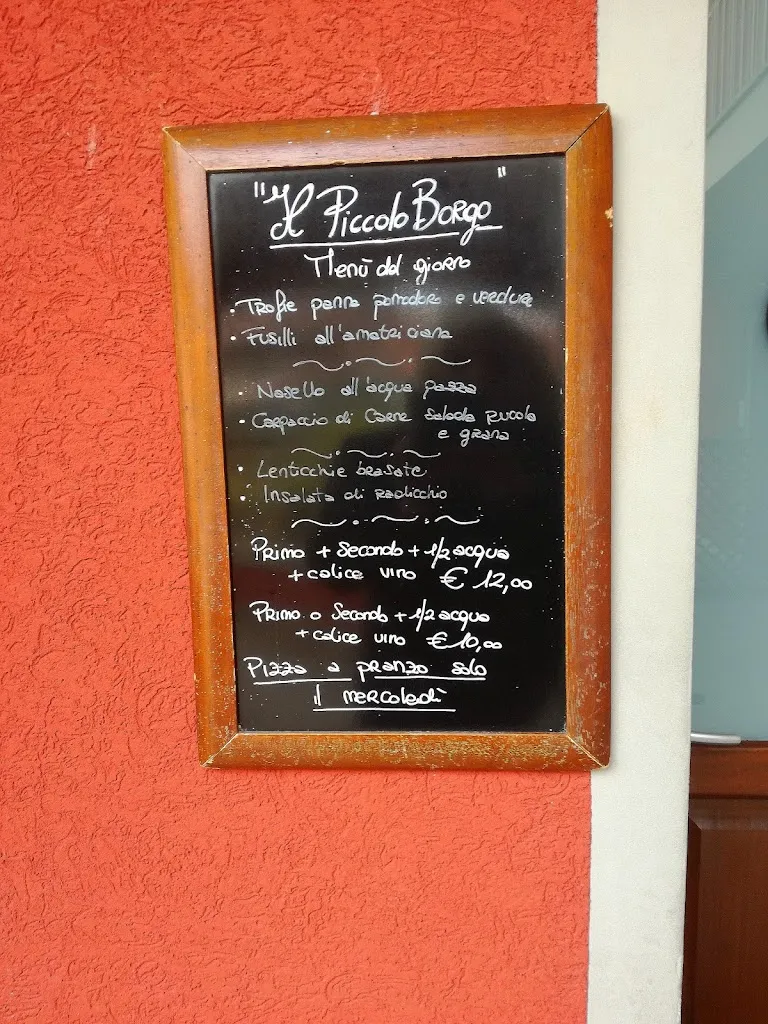 "Il Piccolo Borgo"
Menù del giorno
• Trofie panna pomodoro e verdure
• Fusilli all'amatriciana
• Nasello all'acqua pazza
• Carpaccio di Carne salada rucola
e grana
• Lenticchie brasate
• Insalata di radicchio
Primo + Secondo + 1/2 acqua
+ calice vino € 12,00
Primo o Secondo + 1/2 acqua
+ calice vino € 10,00
Pizza a pranzo solo
il mercoledì